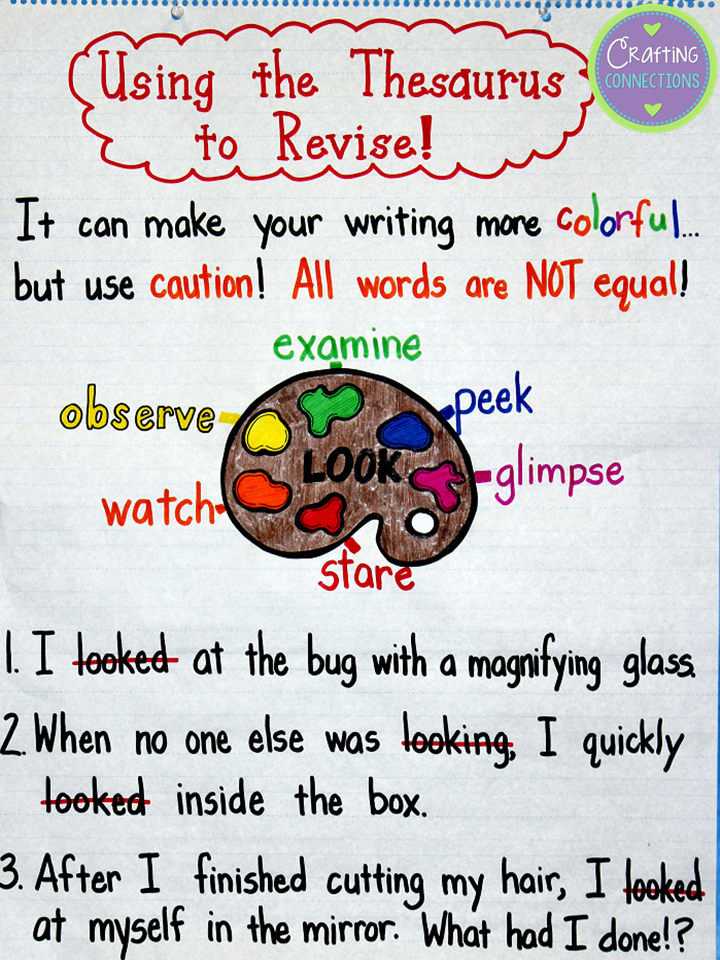 Using the Thesaurus
to Revise!
Crafting
CONNECTIONS
It can make your writing more colorful...
but use caution! All words are NOT equal!
examine
observe
peek
LOOK
glimpse
watch
stare
1. I looked at the bug with a magnifying glass.
2. When no one else was looking, I quickly
looked inside the box.
3. After I finished cutting my hair, I looked
at myself in the mirror. What had I done!?